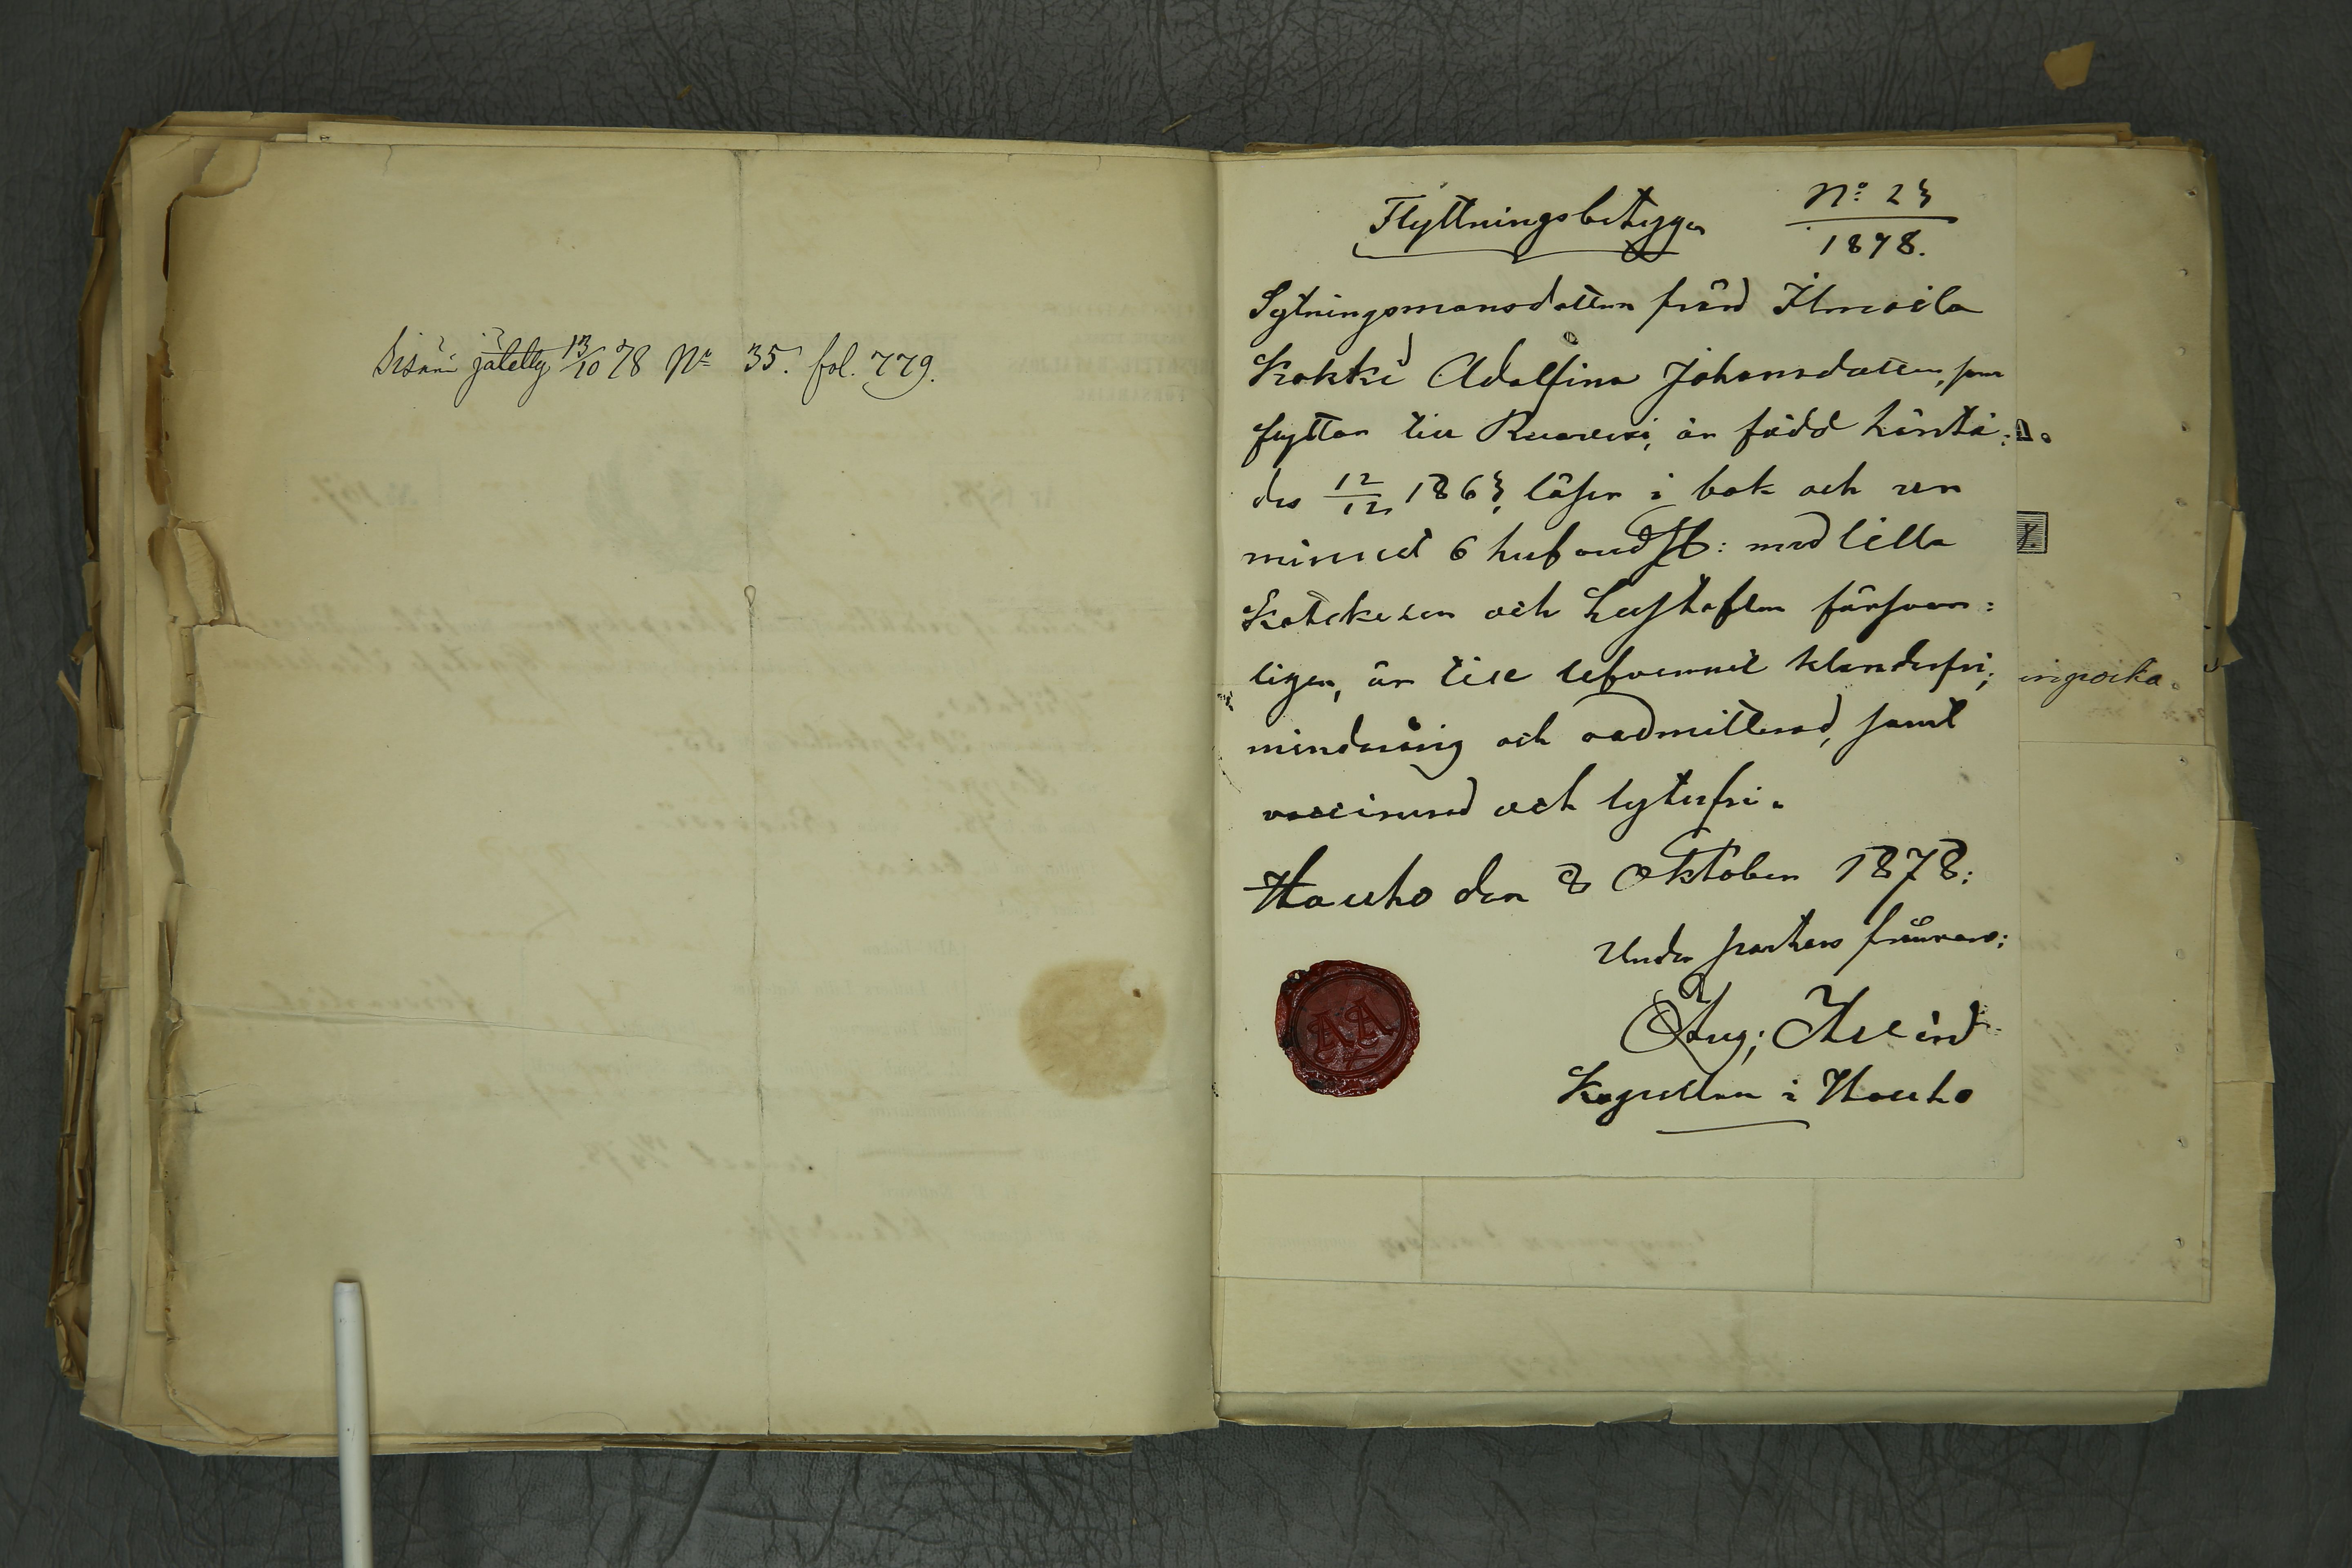 Sisään jätetty 13/10 78 Nr 35. fol. 779.
Flyttningsbetyg
No: 23
1878.
Sytningsmansdottern från Ilmoila
Kokki Adolfina Johansdotter, som
flyttar till Ruovesi, är född härstä:
des 12/12 1863, läser i bok och ur
minnet 6 hufvudst: med lilla
Katekesen och hustaflan försvar:
ligen, är till lefvernet klanderfri,
minderårig och oadmitterad, samt
vaccinerad och lytesfri.
Hauho den 8 Oktober 1878:
Under pastors frånvaro:
Aug:
Kapellan i Hauho
AA